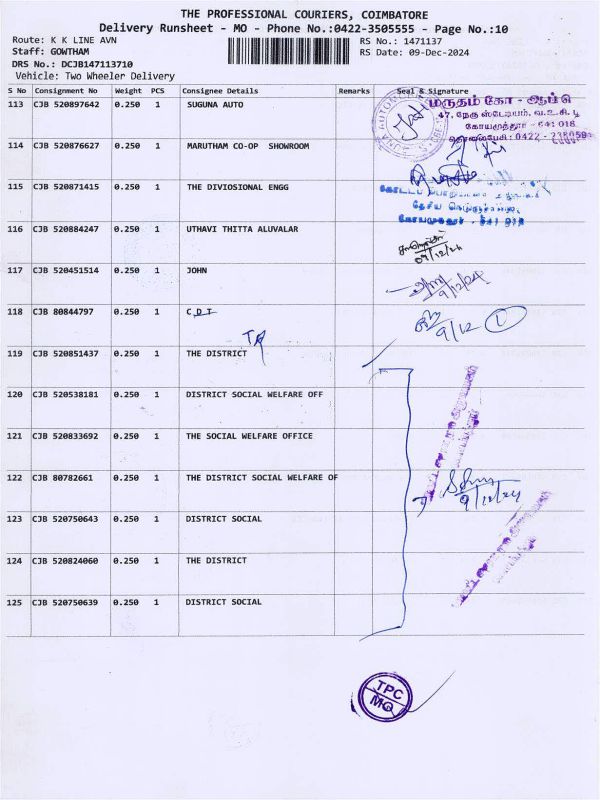 THE PROFESSIONAL COURIERS, COIMBATORE
Delivery Runsheet - MO - Phone No.:0422-3505555 - Page No.:10
Route: K K LINE AVN
RS No.: 1471137
Staff: GOWTHAM
RS Date: 09-Dec-2024
DRS No.: DCJB147113710
Vehicle: Two Wheeler Delivery
S No Consignment No Weight PCS Consignee Details Remarks Seal & Signature
113 CJB 520897642 0.250 1 SUGUNA AUTO
மருதம் கோ - ஆப்
47, நேரு ஸ்டேடியம், வ.உ.சி. பூ
கோயமுத்தூர் - 641 018
தொலைபேசி: 0422 -
114 CJB 520876627 0.250 1 MARUTHAM CO-OP SHOWROOM
115 CJB 520871415 0.250 1 THE DIVIOSIONAL ENGG
கோயமுத்தூர் - 641 018
116 CJB 520884247 0.250 1 UTHAVI THITTA ALUVALAR
09/12/24
117 CJB 520451514 0.250 1 JOHN
9/12/24
118 CJB 80844797 0.250 1 C D T
9/12 1
119 CJB 520851437 0.250 1 THE DISTRICT
120 CJB 520538181 0.250 1 DISTRICT SOCIAL WELFARE OFF
121 CJB 520833692 0.250 1 THE SOCIAL WELFARE OFFICE
122 CJB 80782661 0.250 1 THE DISTRICT SOCIAL WELFARE OF
9/12/24
123 CJB 520750643 0.250 1 DISTRICT SOCIAL
124 CJB 520824060 0.250 1 THE DISTRICT
125 CJB 520750639 0.250 1 DISTRICT SOCIAL
TPC
MQ